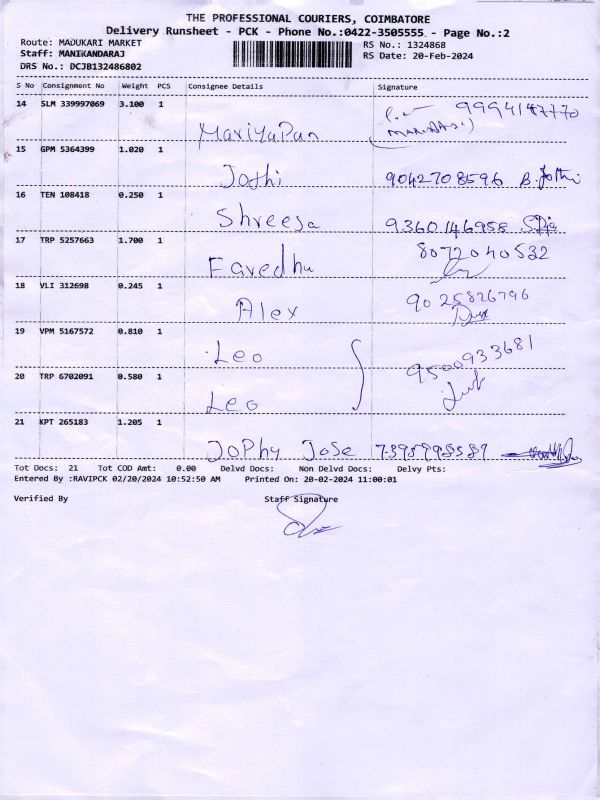 THE PROFESSIONAL COURIERS, COIMBATORE
Delivery Runsheet - PCK - Phone No.:0422-3505555 - Page No.:2
Route: MADUKARI MARKET
RS No.: 1324868
Staff: MANIKANDARAJ
RS Date: 20-Feb-2024
DRS No.: DCJB132486802
S No Consignment No Weight PCS Consignee Details Signature
14 SLM 339997069 3.100 1 Mariyapan
15 GPM 5364399 1.020 1 Jothi 9042708596 B. Jothi
16 TEN 108418 0.250 1 Shreesa 9360146958
17 TRP 5257663 1.700 1 Faredhu 8072040532
18 VLI 312698 0.245 1 Alex 9025826796
19 VPM 5167572 0.810 1 Leo 9500933681
20 TRP 6702091 0.580 1 Leo
21 KPT 265183 1.205 1 Jophy Jose
Tot Docs: 21 Tot COD Amt: 0.00 Delvd Docs: Non Delvd Docs: Delvy Pts:
Entered By :RAVIPCK 02/20/2024 10:52:50 AM Printed On: 20-02-2024 11:00:01
Verified By Staff Signature